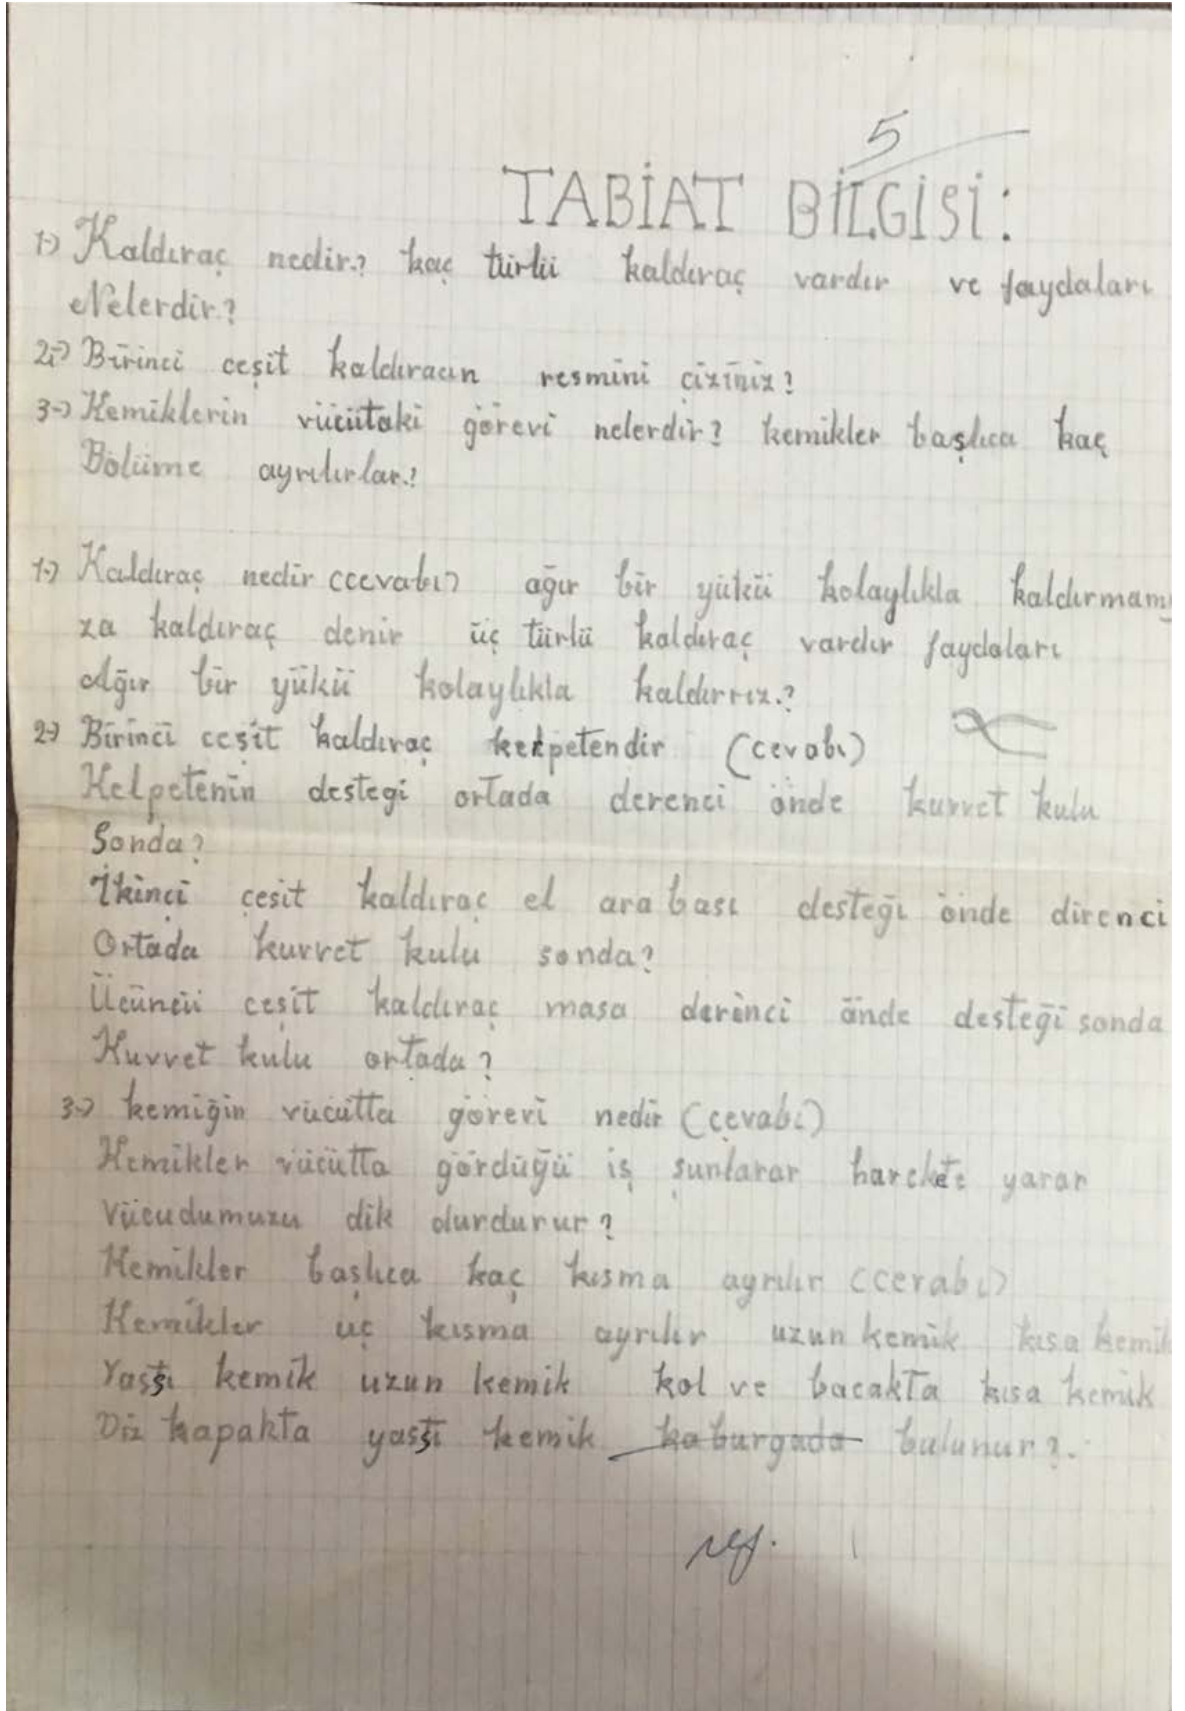 5
TABİAT BİLGİSİ:
1-) Kaldıraç nedir.? kaç türlü kaldıraç vardır ve faydaları
Nelerdir.?
2-) Birinci ceşit kaldıracın resmini çiziniz?
3-) Kemiklerin vücütaki görevi nelerdir? kemikler başlıca kaç
Bölüme ayrılırlar.?
1-) Kaldıraç nedir (cevabı) ağır bir yükü kolaylıkla kaldırmamı
za kaldıraç denir üç türlü kaldıraç vardır faydaları
Ağır bir yükü kolaylıkla kaldırrız.?
2-) Birinci ceşit kaldıraç kelpetendir (cevabı)
Kelpetenin destegi ortada derenci önde kuvvet kulu
Sonda?
İkinci çesit kaldıraç el arabası desteği önde direnci
Ortada kuvvet kulu sonda?
Üçüncü ceşit kaldıraç masa derinci önde desteği sonda
Kuvvet kulu ortada?
3-) kemiğin vücütta görevi nedir (cevabı)
Kemikler vücütta gördüğü iş şunlarar harekete yarar
Vücudumuzu dik durdurur?
Kemikler başlıca kaç kısma ayrılır (cevabı)
Kemikler üç kısma ayrılır uzun kemik kısa kemik
Yassı kemik uzun kemik kol ve bacakta kısa kemik
Diz kapakta yassı kemik kaburgada bulunur?.